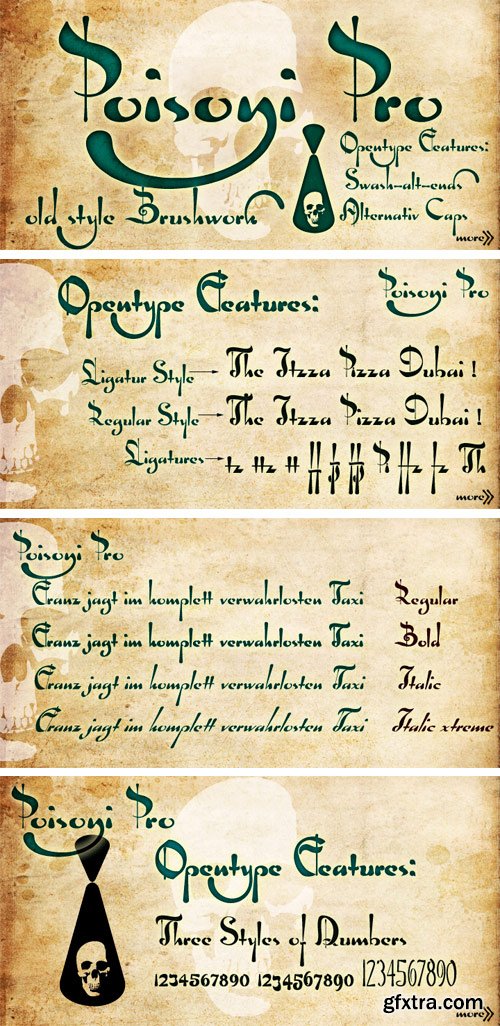 Poisoni Pro
Opentype Features:
Swash-alt-ends
old style Brushwork
Alternativ Caps
more
Opentype Features:
Poisoni Pro
Ligatur Style
The Itzza Pizza Dubai !
Regular Style
The Itzza Pizza Dubai !
Ligatures
more
Poisoni Pro
Franz jagt im komplett verwahrlosten Taxi
Regular
Franz jagt im komplett verwahrlosten Taxi
Bold
Franz jagt im komplett verwahrlosten Taxi
Italic
Franz jagt im komplett verwahrlosten Taxi
Italic xtreme
Poisoni Pro
Opentype Features:
Three Styles of Numbers
1234567890 1234567890 1234567890
gfxtra.com
more